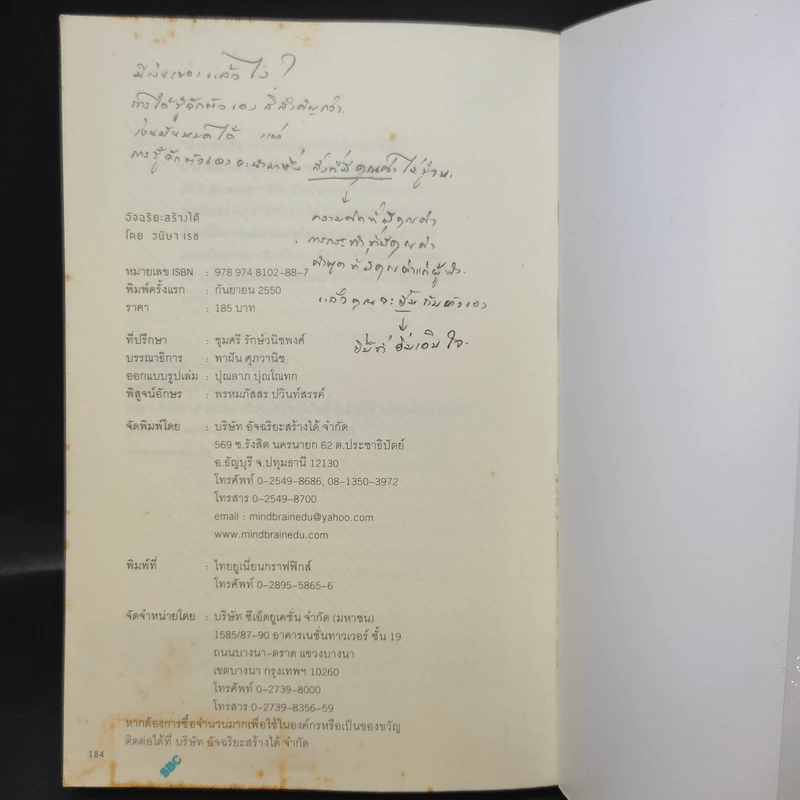 มีเงินเยอะแล้วไง ?
การได้รู้จักตัวเอง สิ่สำคัญกว่า.
เงินมันหมดได้ แต่
การรู้จักตัวเองจะนำมาซึ่ง สิ่งที่มีคุณค่า
ความคิดที่มีคุณค่า
การกระทำที่มีคุณค่า
คำพูดที่มีคุณค่าแก่ผู้ฟัง.
แล้วคุณจะยิ้มกับตัวเอง
ยิ้มที่อิ่มเอิบใจ.
อัจฉริยะสร้างได้
โดย วนิษา เรซ
หมายเลข ISBN : 978 974 8102-88-7
พิมพ์ครั้งแรก : กันยายน 2550
ราคา : 185 บาท
ที่ปรึกษา : ชุมศรี รักษ์วนิชพงศ์
บรรณาธิการ : พาฝัน ศุภวานิช
ออกแบบรูปเล่ม : ปุณลาภ ปุณโณทก
พิสูจน์อักษร : พรหมภัสสร ปวินท์สรรค์
จัดพิมพ์โดย : บริษัท อัจฉริยะสร้างได้ จำกัด
569 ซ.รังสิต นครนายก 62 ต.ประชาธิปัตย์
อ.ธัญบุรี จ.ปทุมธานี 12130
โทรศัพท์ 0-2549-8686, 08-1350-3972
โทรสาร 0-2549-8700
email : mindbrainedu@yahoo.com
www.mindbrainedu.com
พิมพ์ที่ : ไทยยูเนี่ยนกราฟฟิกส์
โทรศัพท์ 0-2895-5865-6
จัดจำหน่ายโดย : บริษัท ซีเอ็ดยูเคชั่น จำกัด (มหาชน)
1585/87-90 อาคารเนชั่นทาวเวอร์ ชั้น 19
ถนนบางนา-ตราด แขวงบางนา
เขตบางนา กรุงเทพฯ 10260
โทรศัพท์ 0-2739-8000
โทรสาร 0-2739-8356-59
หากต้องการซื้อจำนวนมากเพื่อใช้ในองค์กรหรือเป็นของขวัญ
ติดต่อได้ที่ บริษัท อัจฉริยะสร้างได้ จำกัด
184
SBC